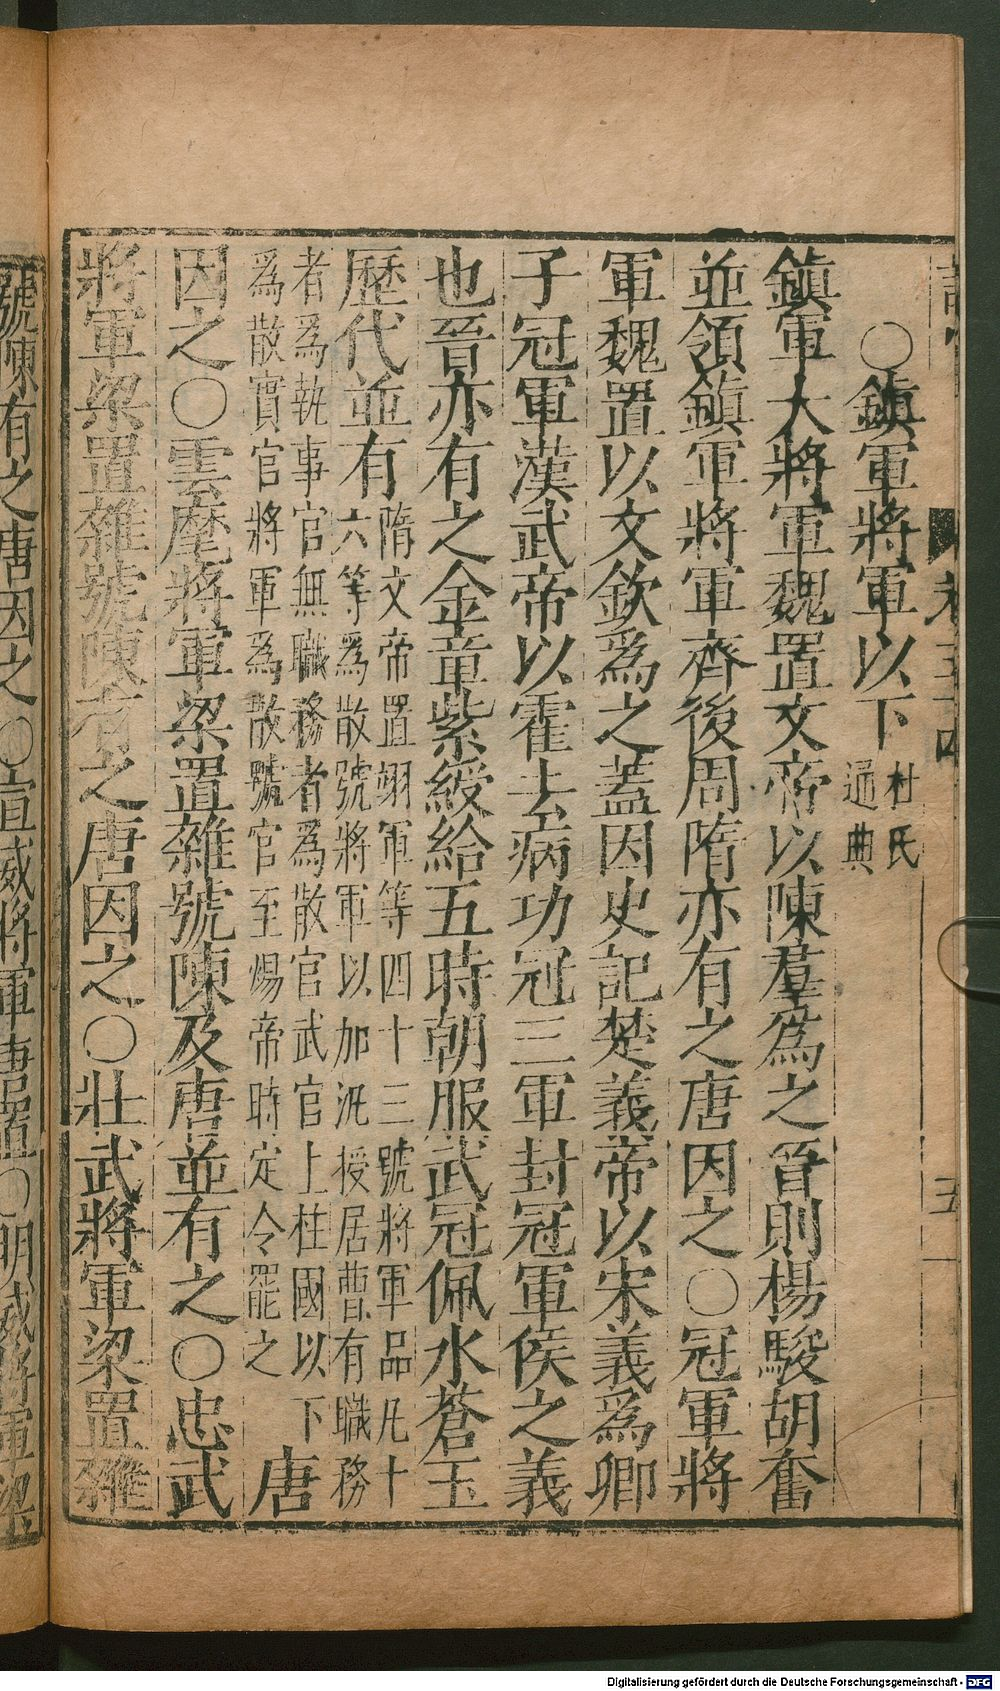 卷三十四
五
○鎮軍將軍以下 杜氏
通典
鎮軍大將軍魏置文帝以陳羣爲之晉則楊駿胡奮
並領鎮軍將軍齊後周隋亦有之唐因之○冠軍將
軍魏置以文欽爲之蓋因史記楚義帝以宋義爲卿
子冠軍漢武帝以霍去病功冠三軍封冠軍侯之義
也晉亦有之金章紫綬給五時朝服武冠佩水蒼玉
歷代並有
隋文帝置翊軍等四十三號將軍品凡十
六等爲散號將軍以加汎授居曹有職務
者爲執事官無職務者爲散官武官上柱國以下
爲散實官將軍爲散號官至煬帝時定令罷之
唐
因之○雲麾將軍梁置雜號陳及唐並有之○忠武
將軍梁置雜號陳有之唐因之○壯武將軍梁置雜
號陳有之唐因之○宣威將軍唐置○明威將軍梁
Digitalisierung gefördert durch die Deutsche Forschungsgemeinschaft - DFG